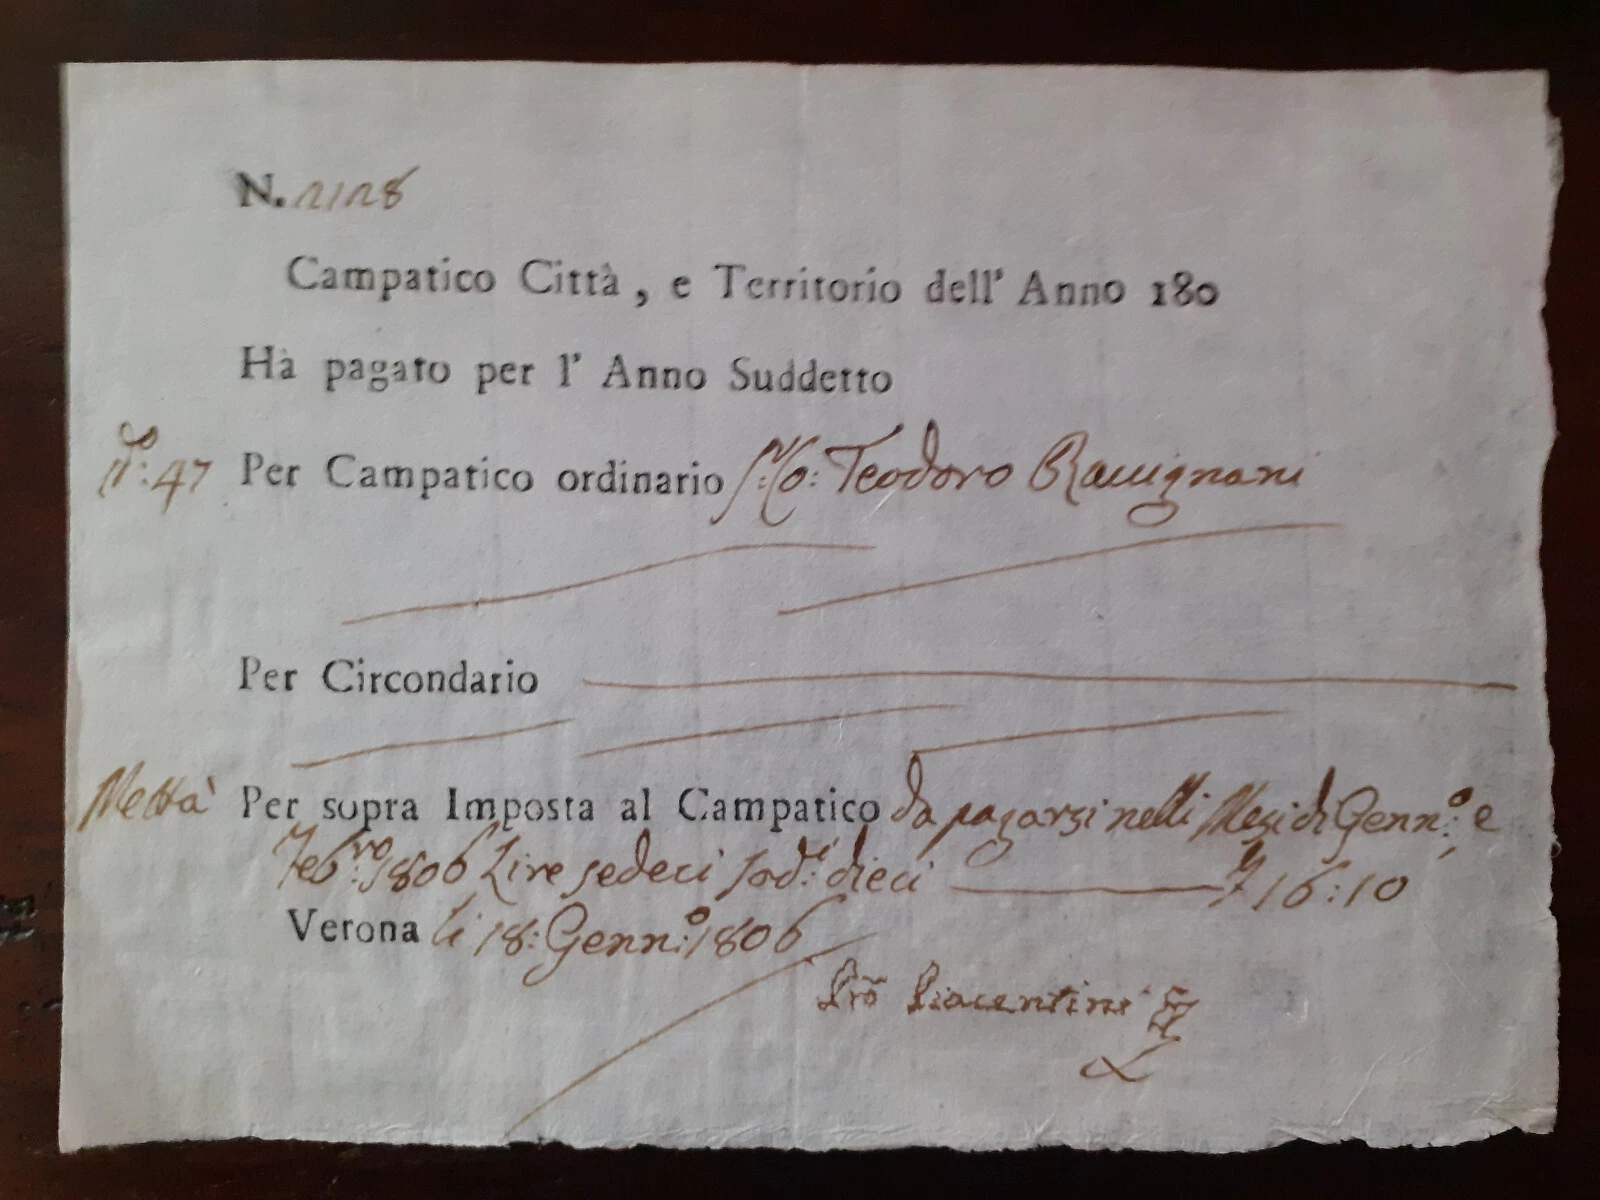 N. 2128
Campatico Città, e Territorio dell' Anno 180
Hà pagato per l' Anno Suddetto
N.º: 47 Per Campatico ordinario Teodoro Ravignani
Per Circondario
Mettà Per sopra Imposta al Campatico da pagarsi nelli Mesi di Genn:º e
Feb:ro 1806 Lire sedeci sod:i dieci 16:10
Verona li 18: Genn:º 1806
Piacentini